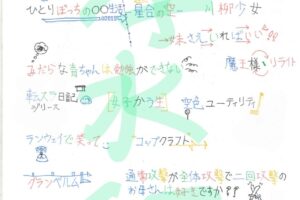 ひとりぼっちの〇〇生活 星合の空 川柳少女
妹さえいればいい。
みだらな青ちゃんは勉強ができない 魔王様、リトライ
転スラ日記 女子かう生 空色ユーティリティ
シリーズ
ランウェイで笑って コップクラフト
グランベルム 通常攻撃が全体攻撃で二回攻撃の
お母さんは好きですか??